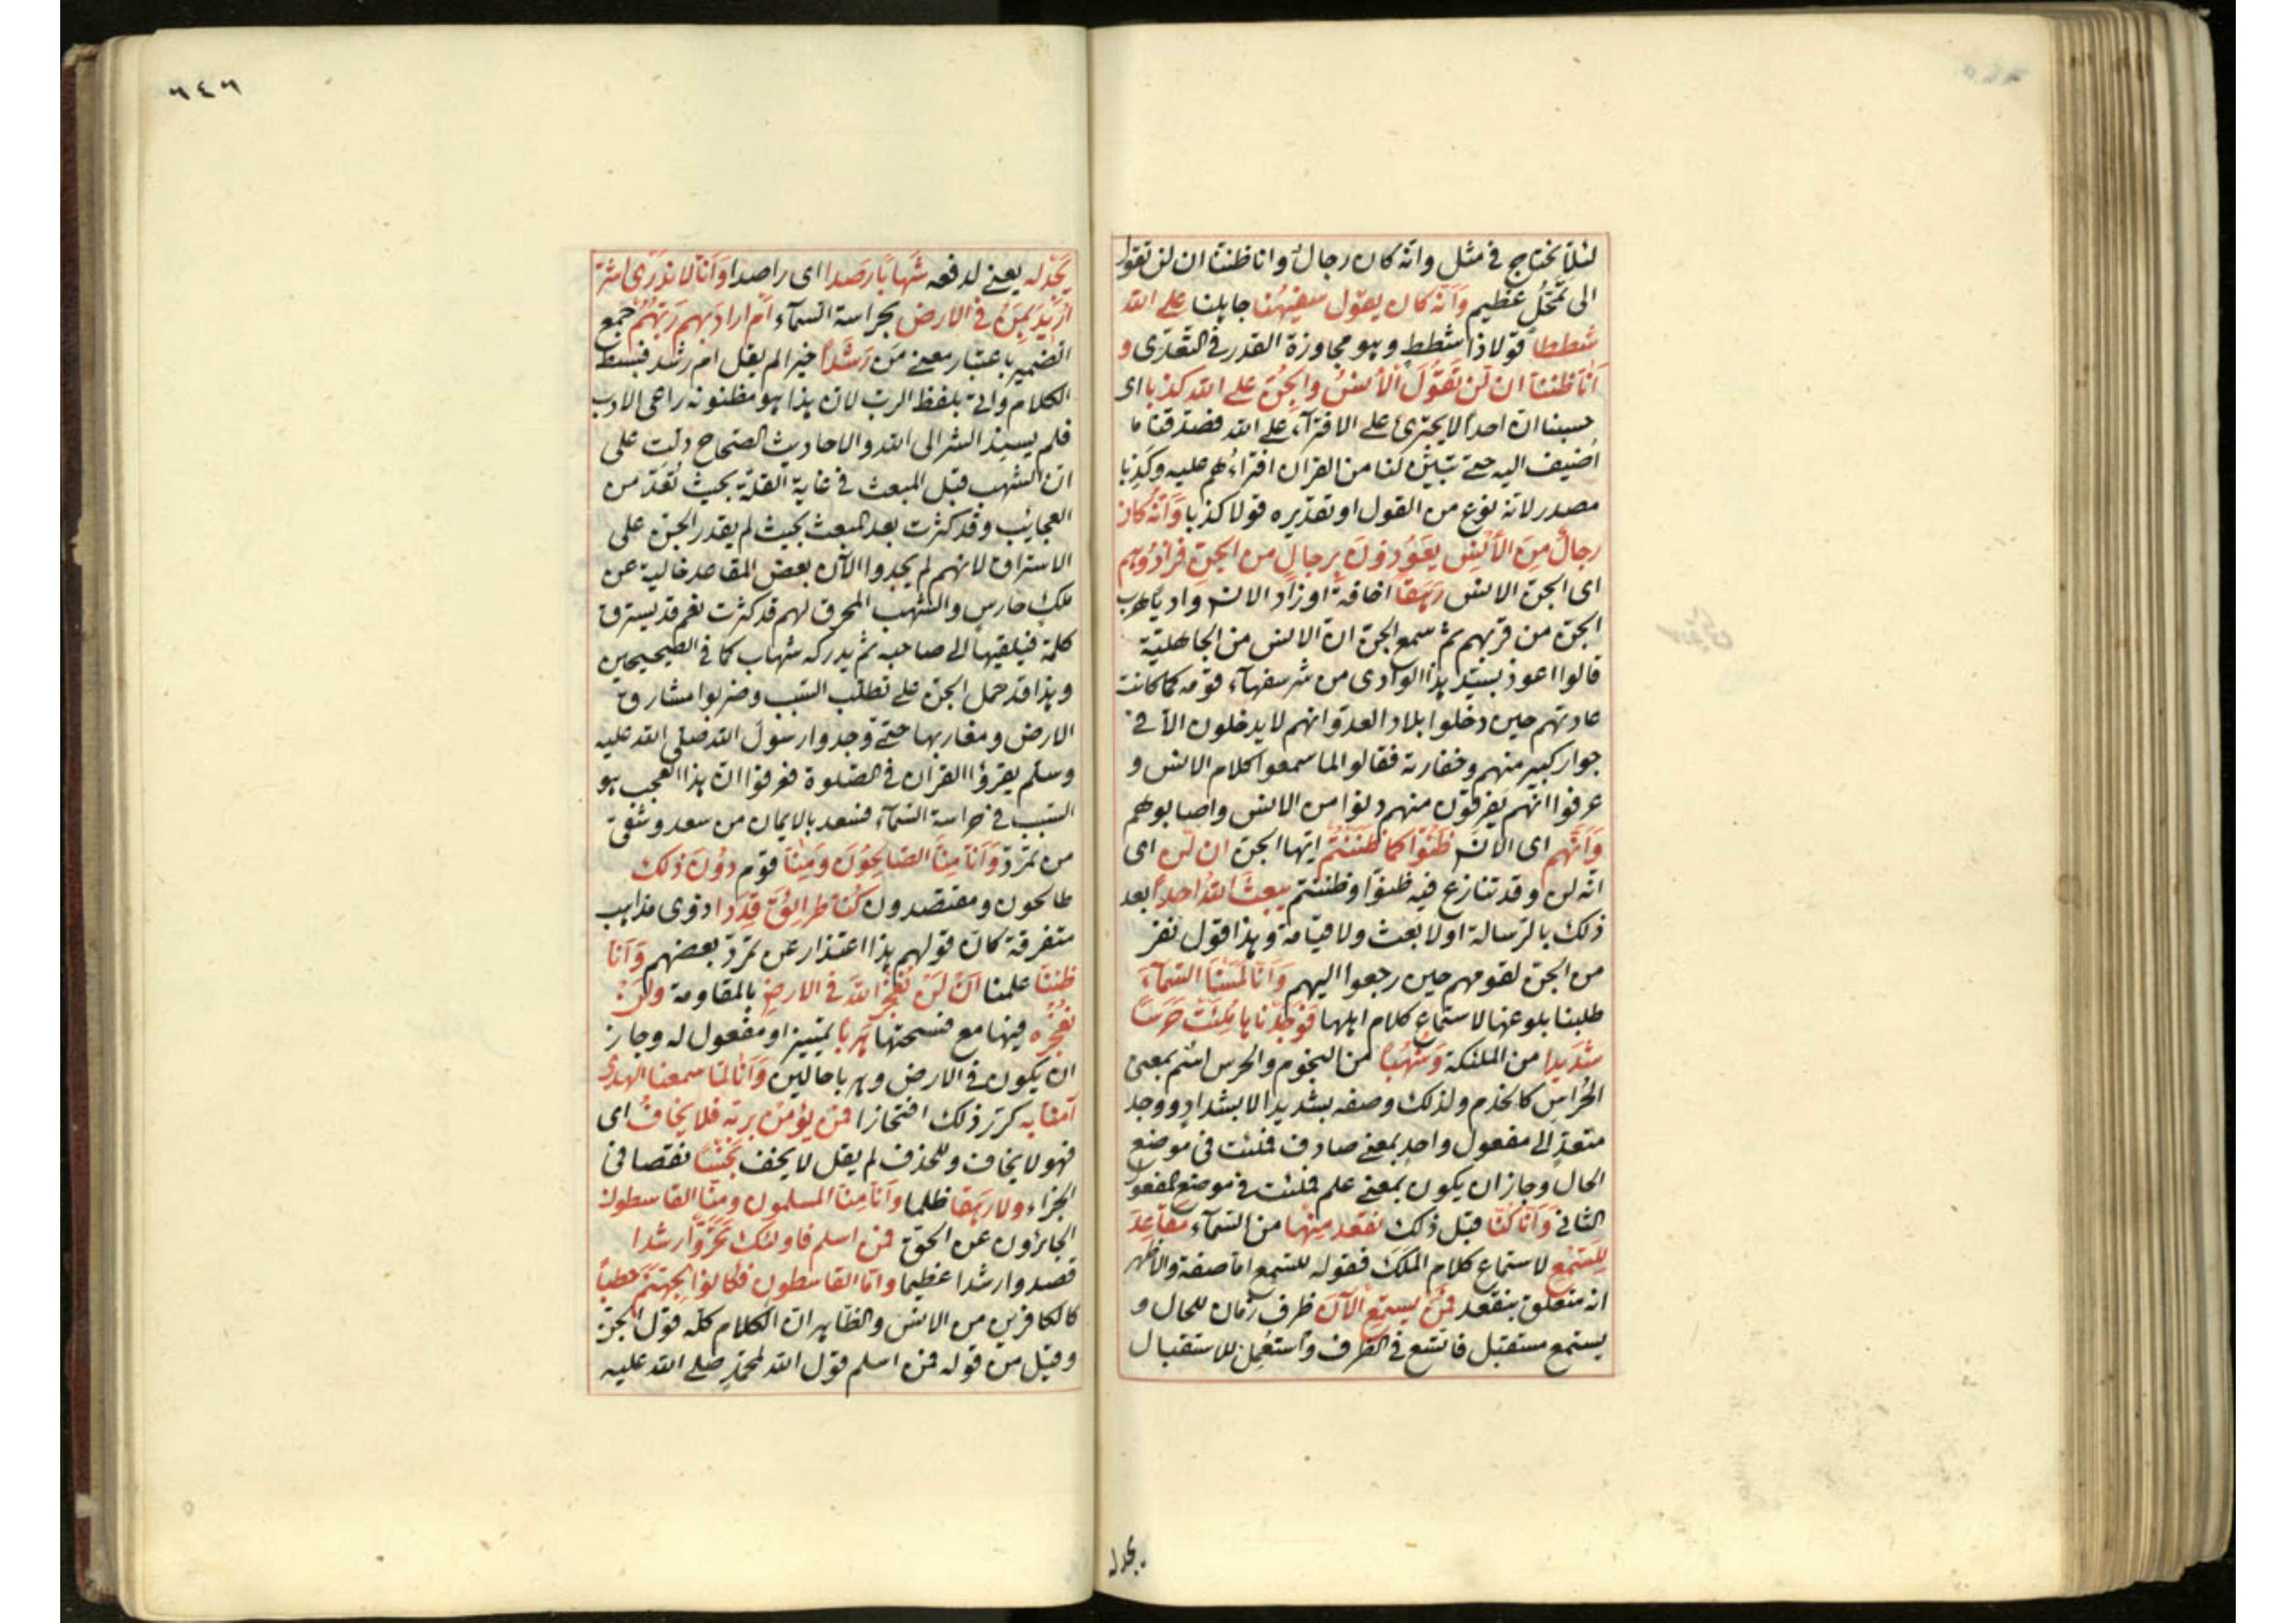 لئلا يحتاج في مثل وانه كان رجال وانا ظننا ان لن تقول
الى تمحّل عظيم وَاَنّه كان يقول سفيهُنا جاهلنا على الله
شططاً قولا ذا شطط وهو مجاوزة القدر في التعدّى و
اَنّا ظننّا ان لن تَقُولَ الْاُنسُ والجِنّ على الله كذبا اى
حسبنا ان احداً لا يجترئ على الافترآء على الله فصدّقنا ما
اُضيف اليه حتى تبيّن لنا من القران افتراءُهم عليه وكذبا
مصدر لانه نوع من القول او تقديره قولا كذبا وَاَنّه كان
رجالٌ مِنَ الْاُنسِ يعَوُذونَ برجالٍ من الجن فزادُوهم
اى الجن الانس رَهَقاً اخافة او زاد الانس واديا هرب
الجن من قربهم ثم سمع الجن ان الانس من الجاهلية
قالوا اعوذ بسيّد هذا الوادى من شر سفهآء قومه كما كانت
عادتهم حين دخلوا بلاد العدو انهم لا يدخلون الا في
جوار كبير منهم وخفارته فقالوا لما سمعوا كلام الانس و
عرفوا انهم يفرقون منهم دنوا من الانس واصابوهم
وَاَنّهم اى الانس ظَنّوا كما ظننتُم ايّها الجن ان لن اى
انّه لن وقد تنازع فيه ظنوّا وظننتم يبعثَ اللهُ احداً بعد
ذلك بالرّسالة او لا بعث ولا قيامة وهذا قول نفر
من الجنّ لقومهم حين رجعوا اليهم وَاَنّا لمَسْنا السّمآءَ
طلبنا بلوغها لاستماع كلام اهلها فوَجَدْنَاها مُلِئَتْ حَرَساً
شديدا من الملئكة وَشُهُباً من النجوم والحرس اسم بمعنى
الحُرّاس كالخدم ولذلك وصفه بشديد لا بشداد ووجد
متعدّ الى مفعول واحد بمعنى صادف فملئت في موضع
الحال وجاز ان يكون بمعنى علم فملئت في موضع المفعول
الثاني وَاَنّا كُنّا قبل ذلك نقعد مِنْها من السّمآء مقاعِدَ
للسّمْع لاستماع كلام الملَك فقوله للسّمع اما صفة والاظهر
انه متعلق بنقعد فمَن يستمع الآنَ ظرف زمان للحال و
يستمع مستقبل فاتّسع في الظرف واستُعمِل للاستقبال
يجد له
٦٤٦
يَجِدْ له يعنى لدفعه شهاباً رصداً اى راصدا وَاَنّا لا نَدْرى اشرّ
اُرْيدَ بِمَنْ في الارض بحراسة السّمآء اَمْ اراد بهم رَبّهُمْ جمع
الضمير باعتبار معنى من رَشَداً خيرا لم يقل ام رشد فبسط
الكلام واتى بلفظ الرب لان هذا هو مظنونه راعى الادب
فلم يسند الشر الى الله والاحاديث الصّحاح دلّت على
ان الشهب قبل المبعث في غاية القلة بحيث تُعَدّ من
العجايب وقد كثرت بعد المبعث بحيث لم يقدر الجن على
الاستراق لانهم لم يجدوا الآن بعض المقاعد خالية عن
ملك حارس والشهب المحرق لهم قد كثرت نعم قد يسترق
كلمة فيلقيها الى صاحبه ثم يدركه شهاب كما في الصحيحين
وهذا قد حمل الجن على تطلّب السّبب وضربوا مشارق
الارض ومغاربها حتى وجدوا رسول الله صلى الله عليه
وسلم يقرؤا القران في الصّلوة فعرفوا ان هذا العجب هو
السّبب في حراسة السّمآء فسعد بالايمان من سعد وشقى
من تمرّد وَاَنّا مِنّا الصّالِحُونَ ومِنّا قوم دُونَ ذلك
طالحون ومقتصدون كُنّا طرائِقَ قِدَدا ذوى مذاهب
متفرقة كان قولهم هذا اعتذار عن تمرّد بعضهم وَاَنّا
ظننّا علمنا اَنْ لَنْ نُعْجِزَ اللهَ في الارضِ بالمقاومة ولَنْ
نُعْجِزَه فيها مع فسحتها هَرَباً تمييز او مفعول له وجاز
ان يكون في الارض وهربا حالين وَاَنّا لمّا سمعنا الهدى
آمنّا به كرّر ذلك افتخارا فمَن يؤمن بربّه فلا يخافُ اى
فهو لا يخاف وللحذف لم يقل لا يخف بَخْساً نقصا في
الجزاء ولا رَهَقا ظلما وَاَنّا مِنّا المسلمون ومنّا القاسطون
الجائرون عن الحق فمن اسلم فاولئك تَحَرّوْا رشدا
قصدوا رشدا عظيما وامّا القاسطون فكانوا لِجهنّم حطباً
كالكافرين من الانس والظاهر ان الكلام كلّه قول الجن
وقيل من قوله فمن اسلم قول الله لمحمّد صلى الله عليه